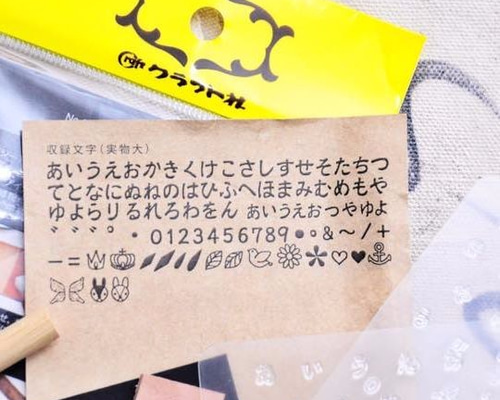 クラフト社
収録文字(実物大)
あいうえおかきくけこさしすせそたちつ
てとなにぬねのはひふへほまみむめもや
ゆよらりるれろわをん ぁぃぅぇぉっゃゅょ
゛゛゛゜・0123456789●○&〜/+
ー=